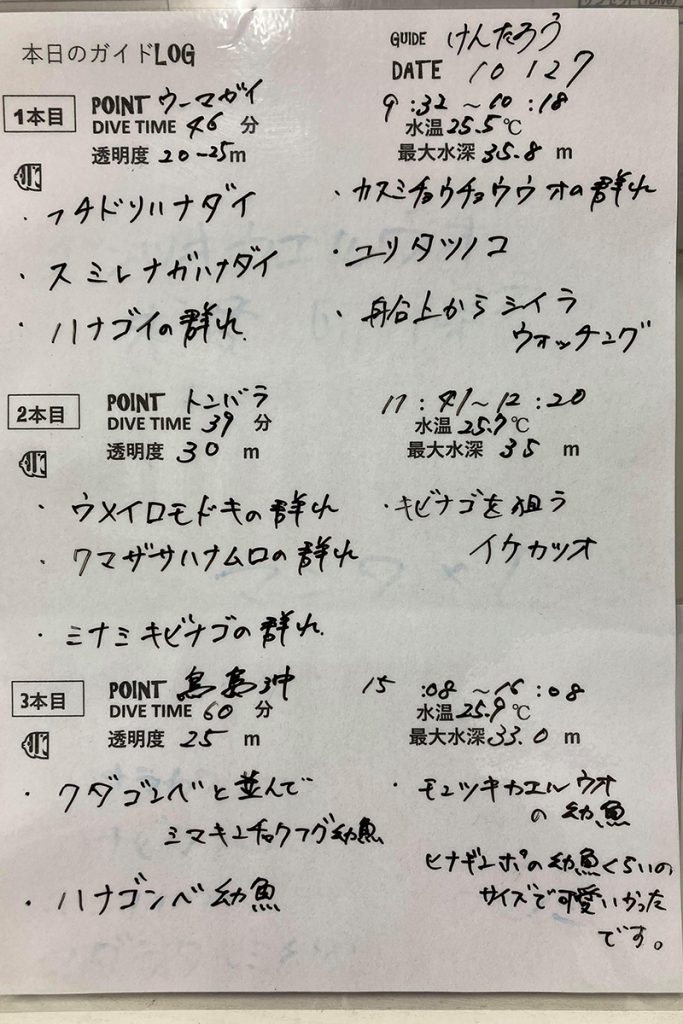 本日のガイドLOG
GUIDE けんたろう
DATE 10 / 27
1本目
POINT ウーマガイ
DIVE TIME 46 分
透明度 20-25m
9:32 ～ 10:18
水温 25.5℃
最大水深 35.8 m
・フチドリハナダイ
・スミレナガハナダイ
・ハナゴイの群れ
・カスミチョウチョウウオの群れ
・ユリタツノコ
・船上からシイラ
ウォッチング
2本目
POINT トンバラ
DIVE TIME 39 分
透明度 30 m
11:41～12:20
水温 25.7℃
最大水深 35 m
・ウメイロモドキの群れ
・クマザサハナムロの群れ
・ミナミキビナゴの群れ
・キビナゴを狙う
イケカツオ
3本目
POINT 鳥島沖
DIVE TIME 60 分
透明度 25 m
15:08 ～16:08
水温 25.9℃
最大水深 33.0 m
・クダゴンベと並んで
シマキンチャクフグ幼魚
・ハナゴンベ幼魚
・モンツキカエルウオ
の幼魚
ヒナギンポの幼魚くらいの
サイズで可愛いかった
です。